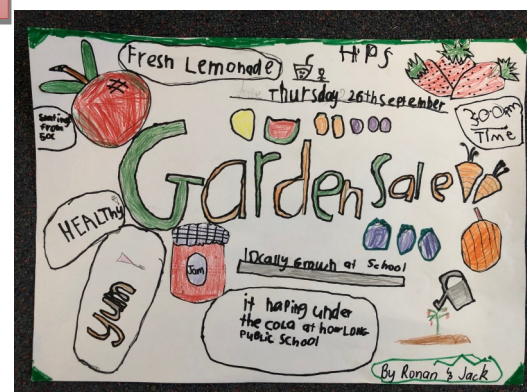 Fresh Lemonade
HPS
Thursday 26th September
Starting
from
50c
3:00pm
Time
Garden Sale
HEALTHY
yum
Jam
locally grown at School
it haping under
the cola at howLONG
PUBLIC School
By Ronan & Jack